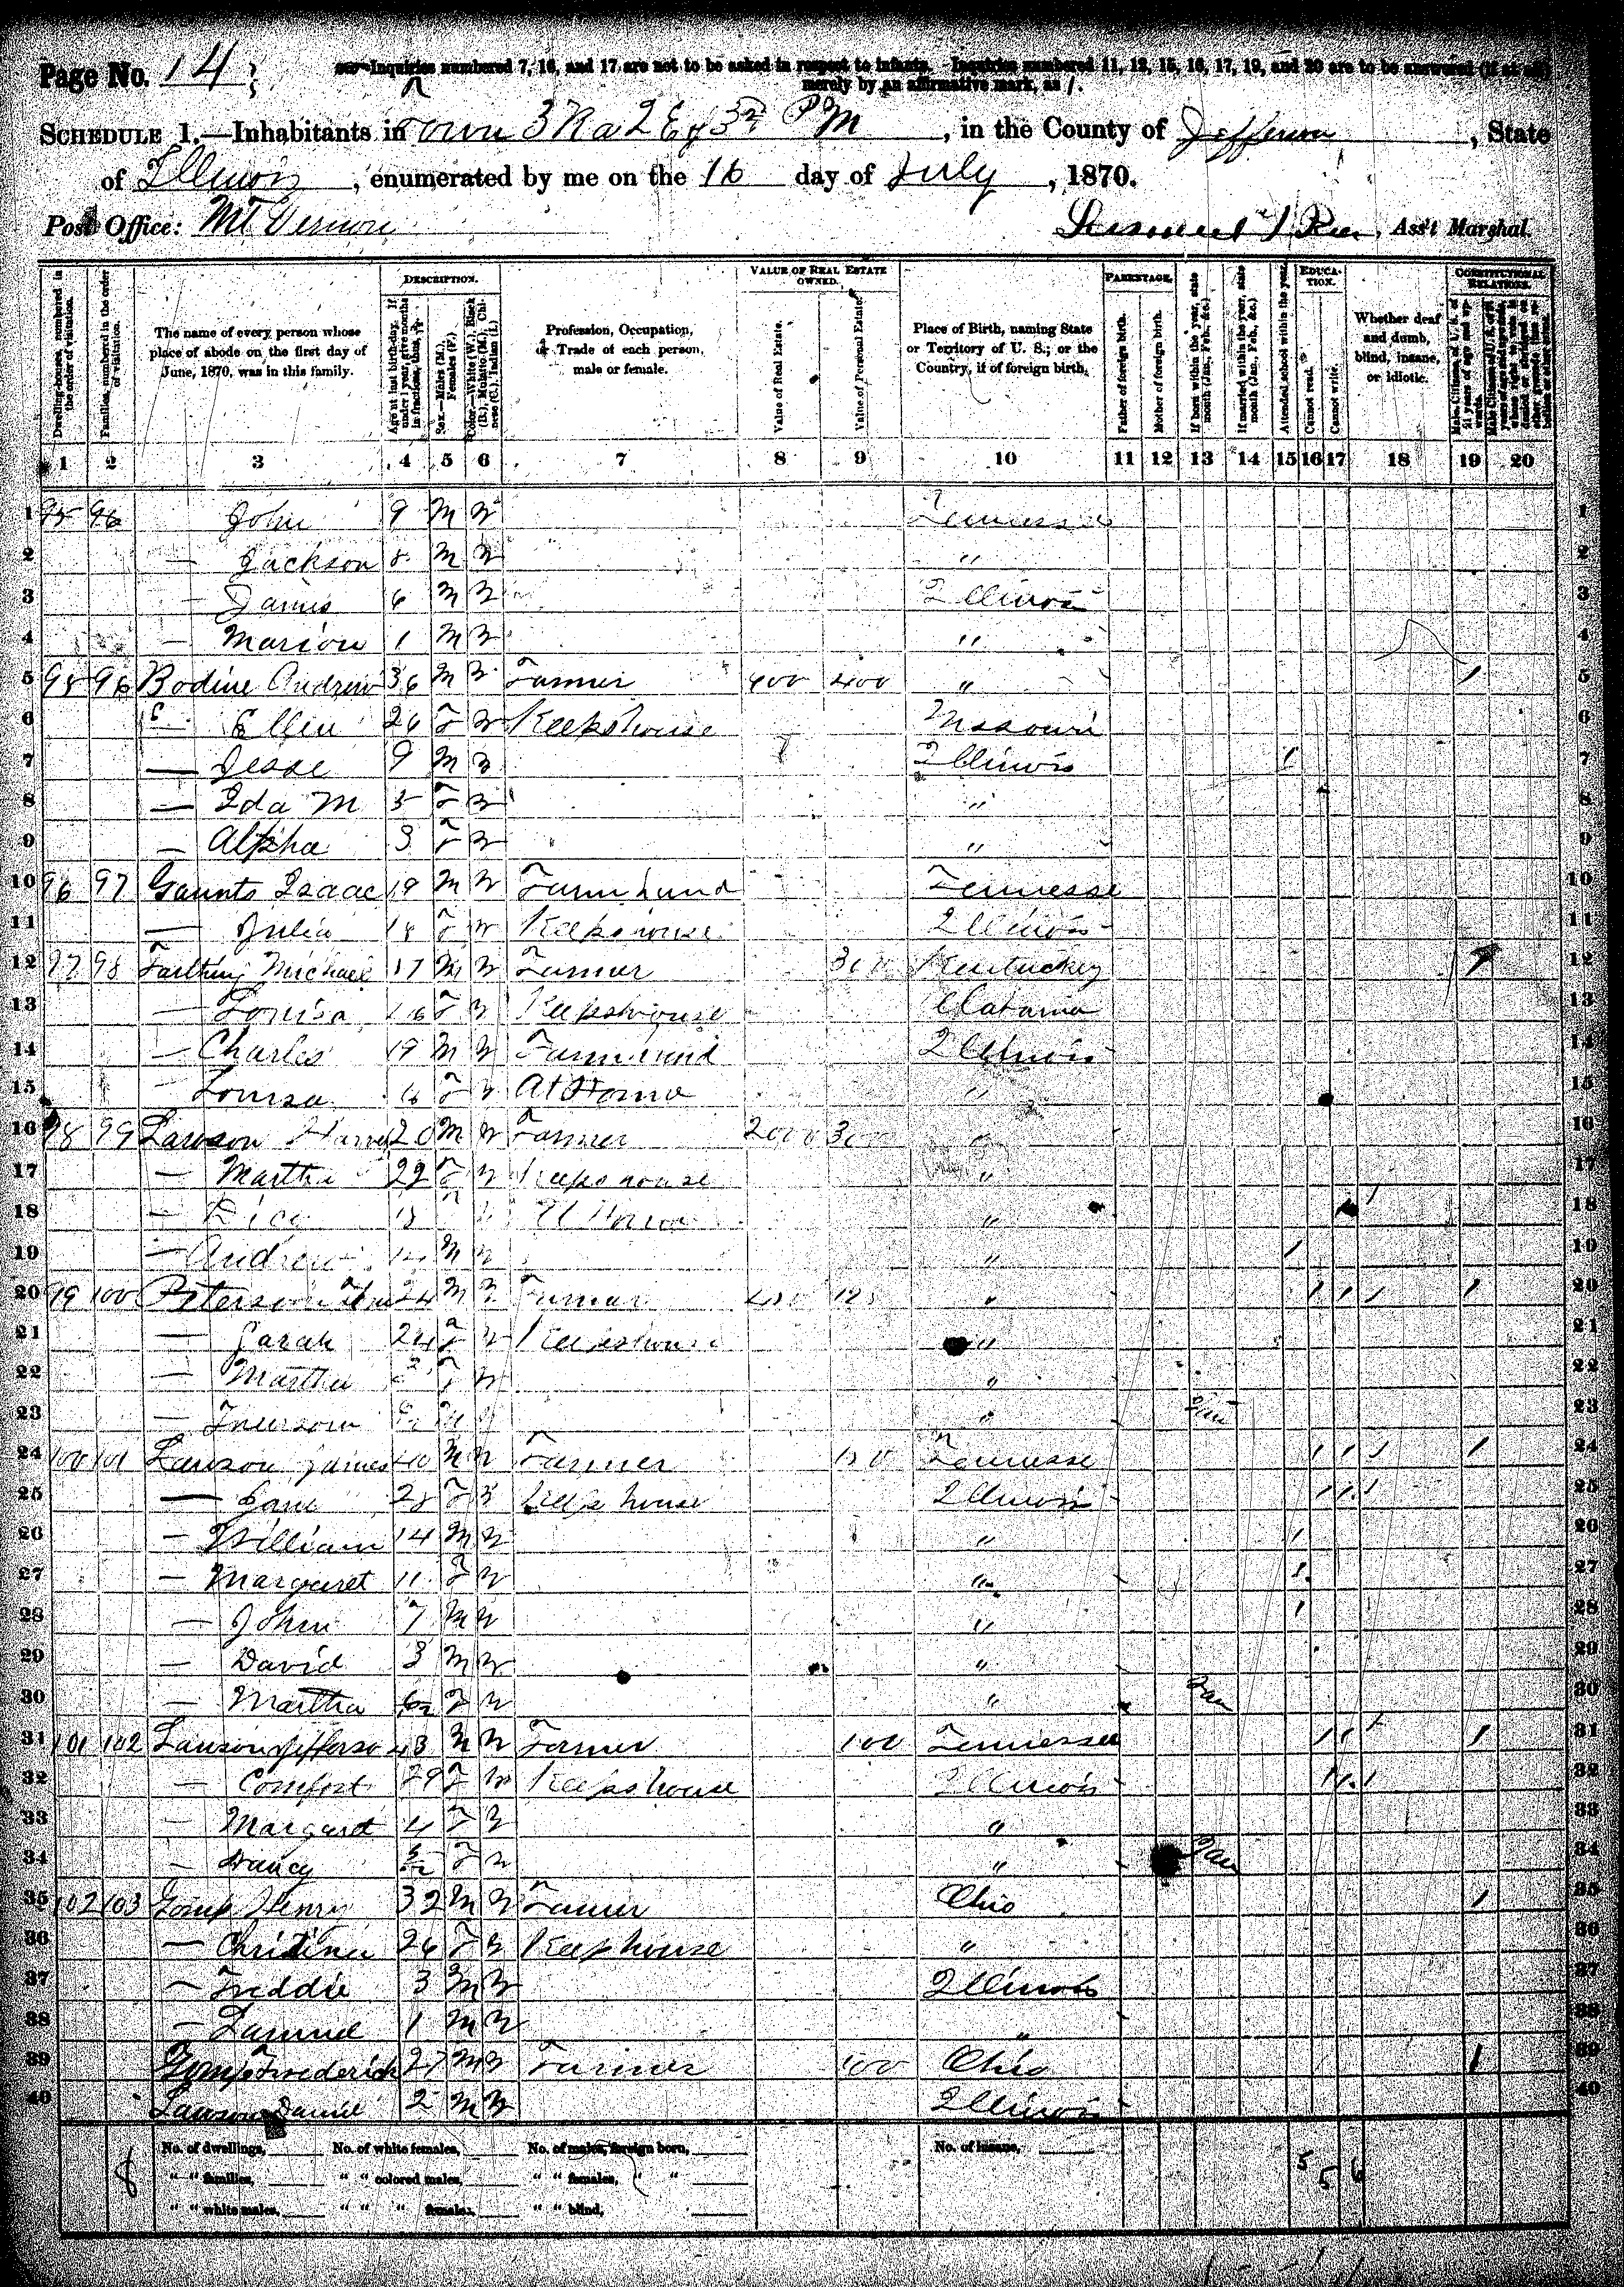 Page No. 14
Inquiries numbered 7, 16, and 17 are not to be asked in respect to infants. Inquiries numbered 11, 12, 15, 16, 17, 19, and 20 are to be answered (if at all)
merely by an affirmative mark, as /.
SCHEDULE 1.—Inhabitants in Town 3 Ra 2 E of 3rd P M, in the County of Jefferson, State
of Illinois, enumerated by me on the 16 day of July, 1870.
Post Office: Mt Vernon
Ass't Marshal.
DESCRIPTION. VALUE OF REAL ESTATE OWNED. PARENTAGE. EDUCATION. CONSTITUTIONAL RELATIONS.
Dwelling-houses, numbered in the order of visitation. Families, numbered in the order of visitation. The name of every person whose place of abode on the first day of June, 1870, was in this family. Age at last birth-day. If under 1 year, give months in fractions, thus, Sex.—Males (M.), Females (F.) Color.—White (W.), Black (B.), Mulatto (M.), Chinese (C.), Indian (I.) Profession, Occupation, or Trade of each person, male or female. Value of Real Estate. Value of Personal Estate. Place of Birth, naming State or Territory of U. S.; or the Country, if of foreign birth. Father of foreign birth. Mother of foreign birth. If born within the year, state month (Jan., Feb., &c.) If married within the year, state month (Jan., Feb., &c.) Attended school within the year. Cannot read. Cannot write. Whether deaf and dumb, blind, insane, or idiotic.
1 2 3 4 5 6 7 8 9 10 11 12 13 14 15 16 17 18 19 20
1 95 96 John 9 M W Tennessee 1
2 — Jackson 8 M W " 2
3 — James 6 M W Illinois 3
4 — Marion 1 M W " 4
5 95 96 Bodine Andrew 36 M W Farmer 400 " / 5
6 — Ellen 26 F W Keeps house Missouri 6
7 — Jesse 9 M W Illinois / 7
8 — Ida M 5 F W " 8
9 — Alpha 3 F W " 9
10 96 97 Gaunts Isaac 19 M W Farm hand Tennesse 10
11 — Julia 18 F W Keeps house Illinois 11
12 97 98 Farthing Michael M W Farmer 300 Kentucky / 12
13 — Louisa F W Keeps house 13
14 — Charles 19 M W Farm hand Illinois 14
15 — Louisa 16 F W At Home " 15
16 98 99 Lawson 20 M W Farmer 2000 300 " 16
17 — Martha 22 F W Keeps house " 17
18 — At Home " / 18
19 — Andrew M W " / 19
20 99 100 Peterson 24 M W Farmer " / / / / 20
21 — Sarah 24 F W Keeps house " 21
22 — Martha F W " 22
23 — M " Jan 23
24 100 101 Lawson James 40 M W Farmer Tennesse / / / / 24
25 — Jane 28 F W Keeps house Illinois / / / 25
26 — William 14 M W " / 26
27 — Margaret 11 F W " / 27
28 — John 7 M W " / 28
29 — David 3 M W " 29
30 — Martha F W " Jan 30
31 101 102 Lawson Jefferso 43 M W Farmer 100 Tennessee / / / / 31
32 — Comfort 29 F W Keeps house Illinois / / / 32
33 — Margaret 4 F W " 33
34 — Nancy F W " Jan 34
35 102 103 Henry 32 M W Farmer Ohio / 35
36 — Christina 26 F W Keeps house " 36
37 — Freddie 3 M W Illinois 37
38 — Samuel 1 M W " 38
39 Frederick 27 M W Farmer Ohio / 39
40 Lawson 2 M W Illinois 40
No. of dwellings, No. of white females, No. of males, foreign born, No. of insane,
8 " " families, " " colored males, " " females, " " 5 5 6
" " white males, " " " females, " " blind,